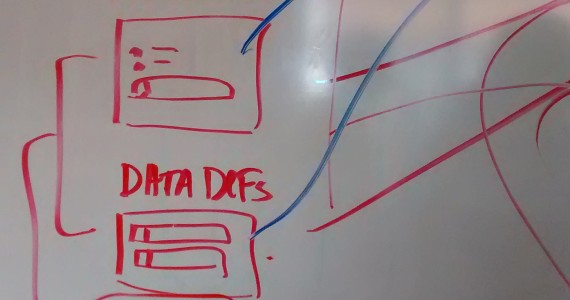 DATA DEFS